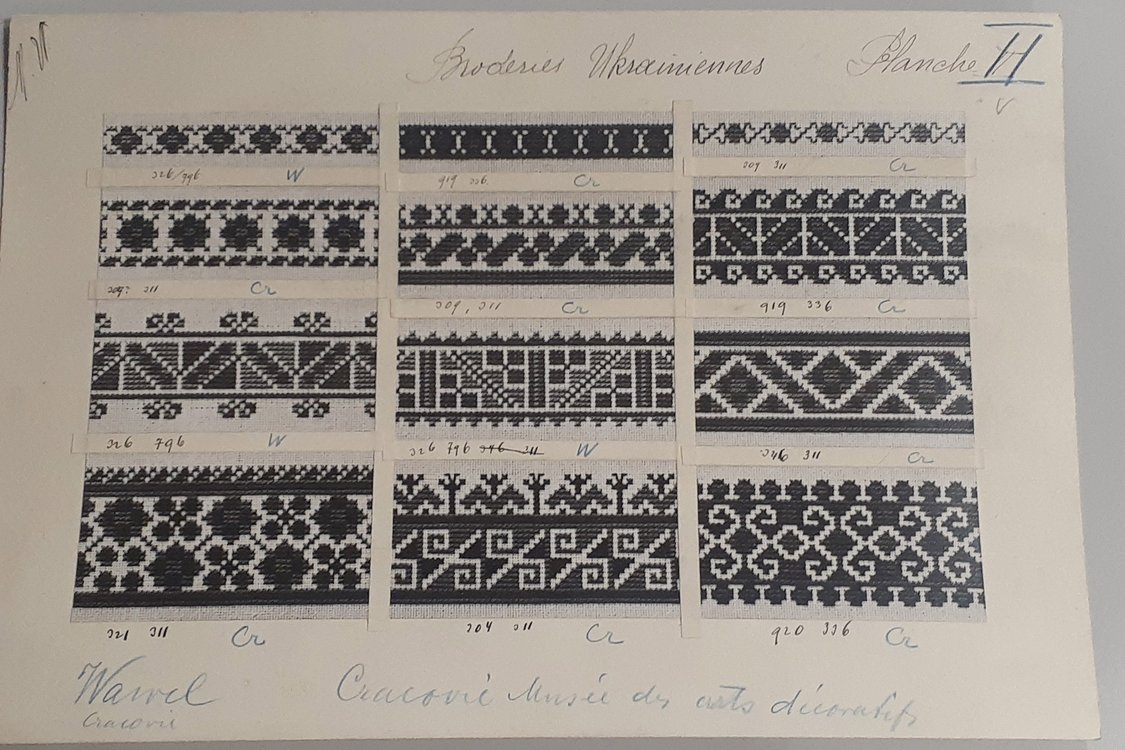 Broderies Ukrainiennes Planche VI
326/796 W
919 336. Cr
309 311 Cr
309? 311 Cr
309, 311 Cr
919 336 Cr
326 796 W
326 796 346 311 W
346 311 Cr
321 311 Cr
304 311 Cr
920 336 Cr
Wawel
Cracovie
Cracovie Musée des arts décoratifs